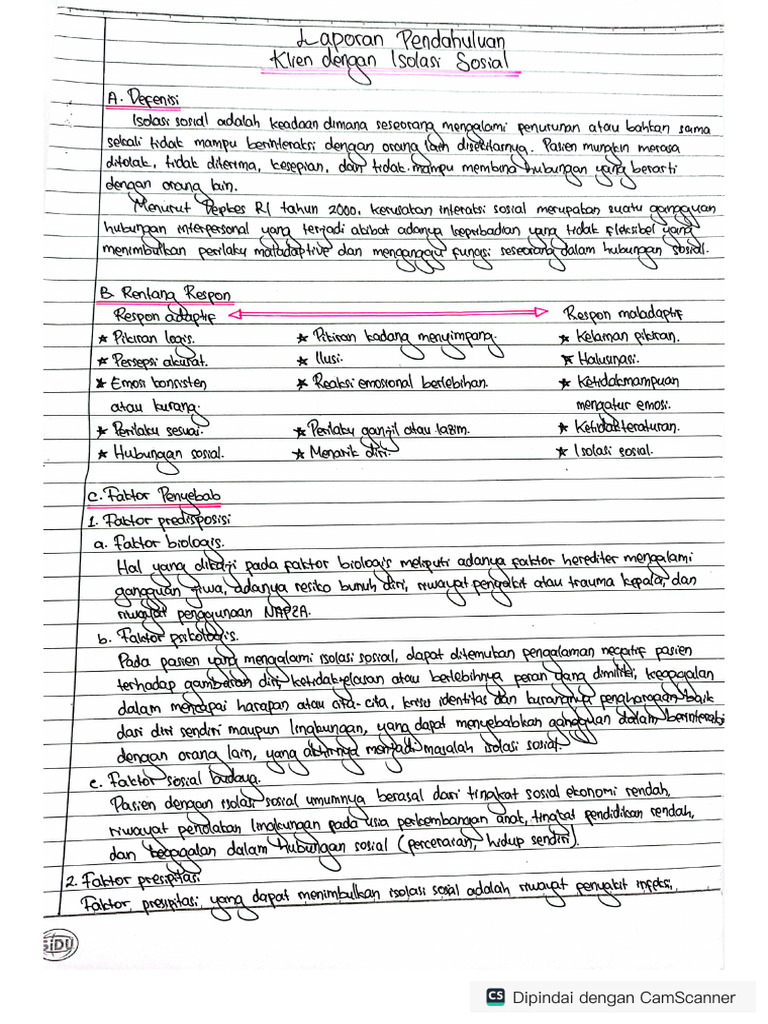 Laporan Pendahuluan
Klien dengan Isolasi Sosial
A. Defenisi
Isolasi sosial adalah keadaan dimana seseorang mengalami penurunan atau bahkan sama
sekali tidak mampu berinteraksi dengan orang lain disekitarnya. Pasien mungkin merasa
ditolak, tidak diterima, kesepian, dan tidak mampu membina hubungan yang berarti
dengan orang lain.
Menurut Depkes RI tahun 2000, kerusakan interaksi sosial merupakan suatu gangguan
hubungan interpersonal yang terjadi akibat adanya kepribadian yang tidak fleksibel yang
menimbulkan perilaku maladaptive dan mengganggu fungsi seseorang dalam hubungan sosial.
B. Rentang Respon
Respon adaptif ⟷ Respon maladaptif
★ Pikiran logis. ★ Pikiran kadang menyimpang. ★ Kelainan pikiran.
★ Persepsi akurat. ★ Ilusi. ★ Halusinasi.
★ Emosi konsisten ★ Reaksi emosional berlebihan. ★ Ketidakmampuan
atau kurang. mengatur emosi.
★ Perilaku sesuai. ★ Perilaku ganjil atau lazim. ★ Ketidakteraturan.
★ Hubungan sosial. ★ Menarik diri. ★ Isolasi sosial.
C. Faktor Penyebab
1. Faktor predisposisi
a. Faktor biologis.
Hal yang dikaji pada faktor biologis meliputi adanya faktor herediter mengalami
gangguan jiwa, adanya resiko bunuh diri, riwayat penyakit atau trauma kepala, dan
riwayat penggunaan NAPZA.
b. Faktor psikologis.
Pada pasien yang mengalami isolasi sosial, dapat ditemukan pengalaman negatif pasien
terhadap gambaran diri, ketidakjelasan atau berlebihnya peran yang dimiliki, kegagalan
dalam mencapai harapan atau cita-cita, krisis identitas dan kurangnya penghargaan baik
dari diri sendiri maupun lingkungan, yang dapat menyebabkan gangguan dalam berinteraksi
dengan orang lain, yang akhirnya menjadi masalah isolasi sosial.
c. Faktor sosial budaya.
Pasien dengan isolasi sosial umumnya berasal dari tingkat sosial ekonomi rendah,
riwayat penolakan lingkungan pada usia perkembangan anak, tingkat pendidikan rendah,
dan kegagalan dalam hubungan sosial (perceraian, hidup sendiri).
2. Faktor presipitasi
Faktor presipitasi yang dapat menimbulkan isolasi sosial adalah riwayat penyakit infeksi,
SiDU
CS Dipindai dengan CamScanner